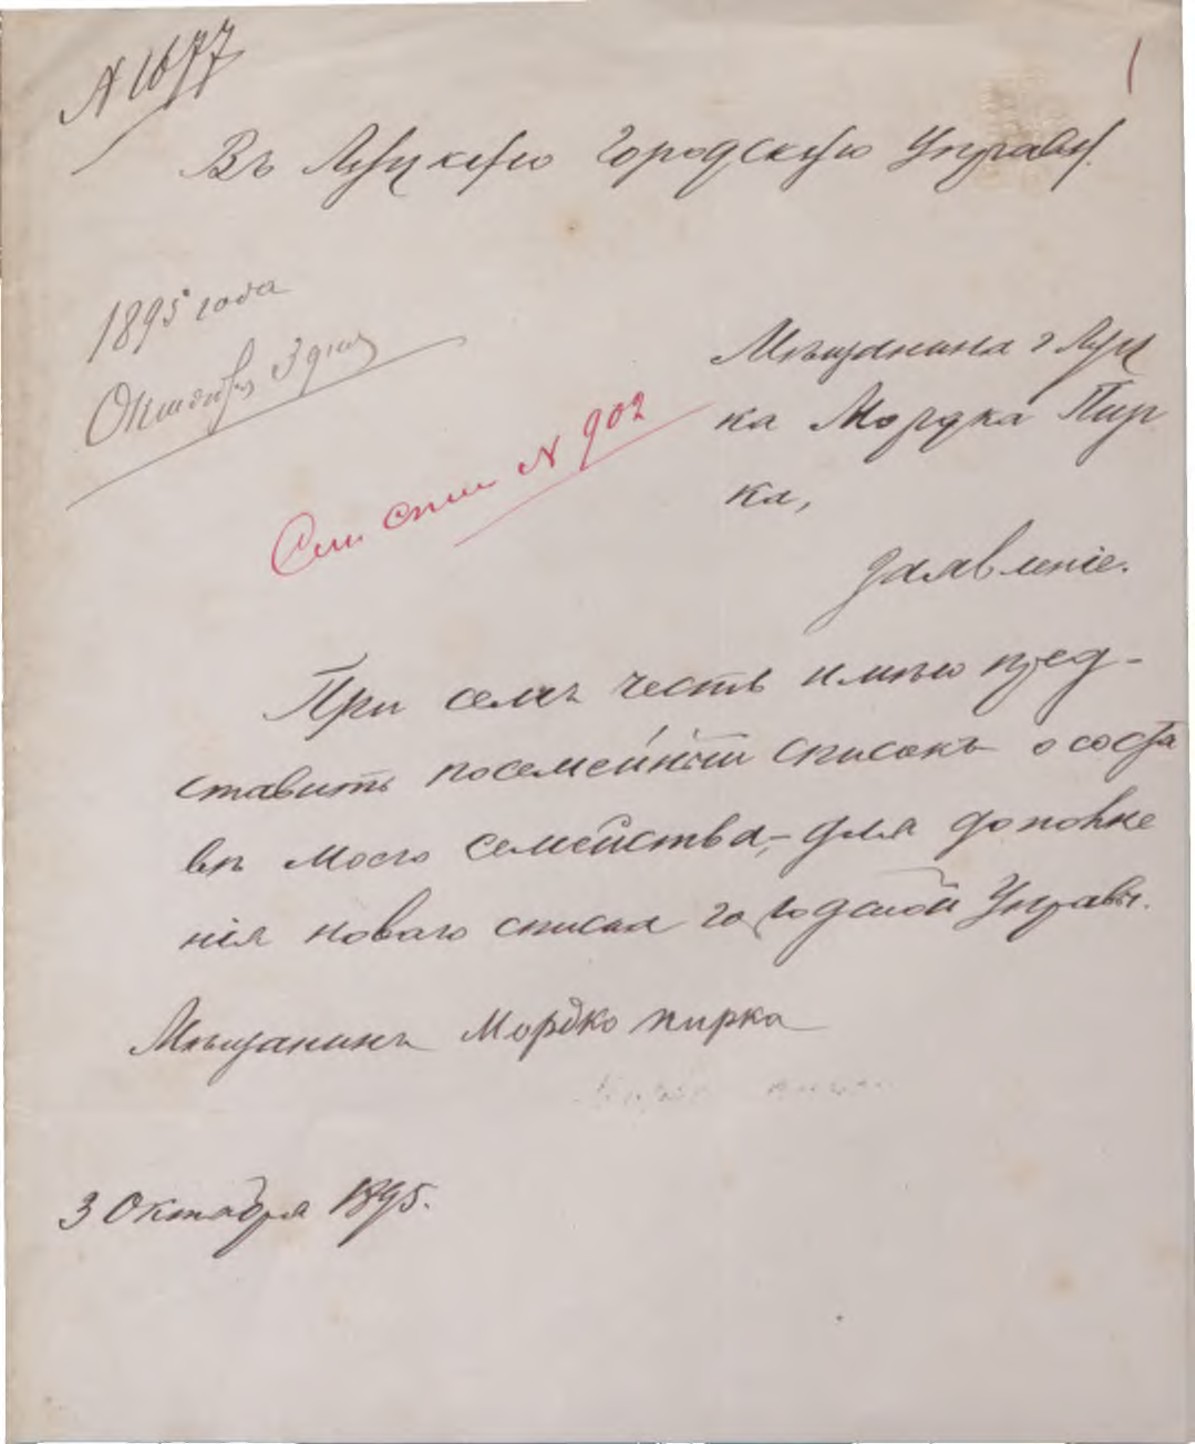 № 1677
1
Въ Луцкую Городскую Управу.
1895 года
Октября 3 дня
Мѣщанина г Луц
ка Мордка Пир
ка,
Сем. спис. № 902
заявленіе.
При семъ честь имѣю пред-
ставить посемейный списокъ о соста
вѣ моего семейства,- для дополне
нія новаго списка городской Управы.
Мѣщанинъ Мордко пирка
3 Октября 1895.